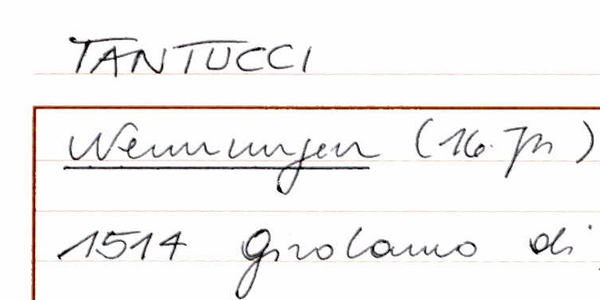 TANTUCCI
Nennungen (16. Jh)
1514 Girolamo di